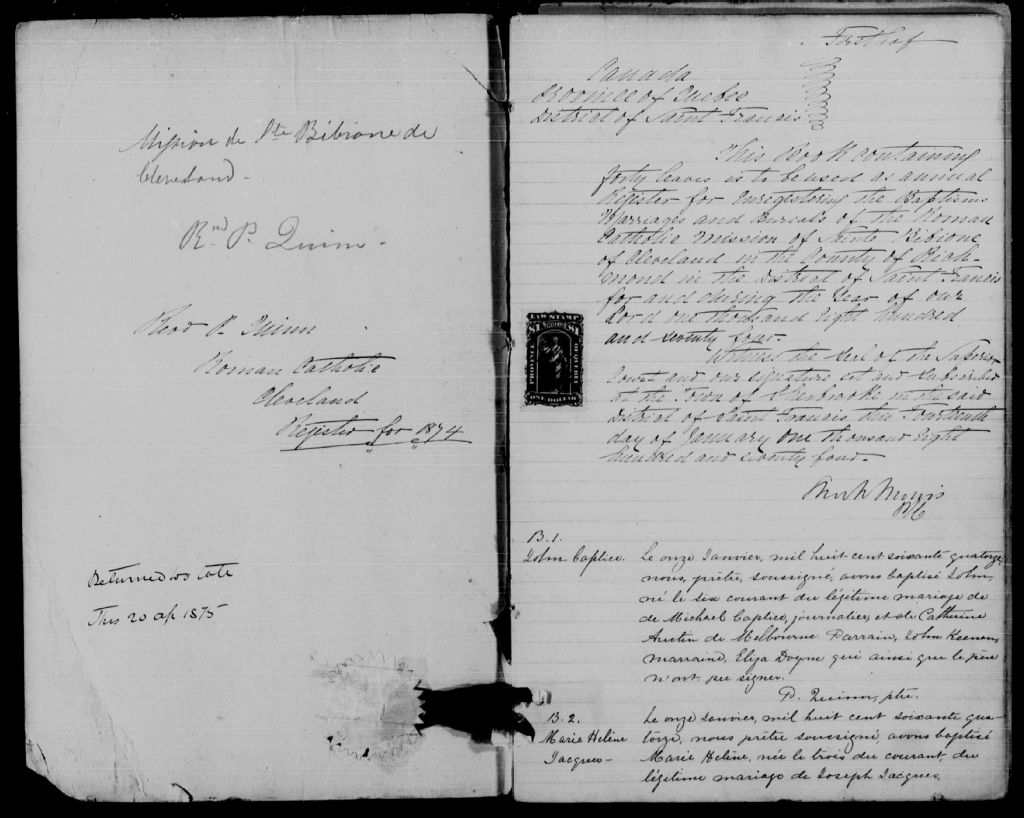 Mission de Ste Bibiane de
Cleveland -
Rnd P. Quinn -
Revd P. Quinn
Roman Catholic
Cleveland
Register for 1874
Returned
This 20 ap 1875
First leaf
Canada
Province of Quebec
District of Saint Francis
This Book containing
forty leaves is to be used as annual
Register for Enregistering the Baptisms
Marriages and Burials of the Roman
Catholic Mission of Sainte Bibiane
of Cleveland in the County of Rich-
mond in the District of Saint Francis
for and during the Year of our
Lord one thousand Eight hundred
and seventy four.
Witness the Seal of the Superior
Court and our signature set and subscribed
at the Town of Sherbrooke in the said
District of Saint Francis this Fourteenth
day of January One thousand Eight
hundred and seventy four -
LAW STAMP
$1 $1
PROVINCE OF QUEBEC
ONE DOLLAR
B. 1.
John Caplice.
Le onze Janvier, mil huit cent soixante quatorze,
nous, prêtre, soussigné, avons baptisé John,
né le six courant du légitime mariage de
de Michael Caplice, journalier, et de Catherine
Austin de Melbourne. Parrain, John Keenen,
marraine, Eliza Doyne qui ainsi que le père
n'ont pu signer.
P. Quinn, ptre.
B. 2.
Marie Helène
Jacques -
Le onze Janvier, mil huit cent soixante qua-
torze, nous prêtre soussigné, avons baptisé
Marie Helène, née le trois du courant, du
légitime mariage de Joseph Jacques,